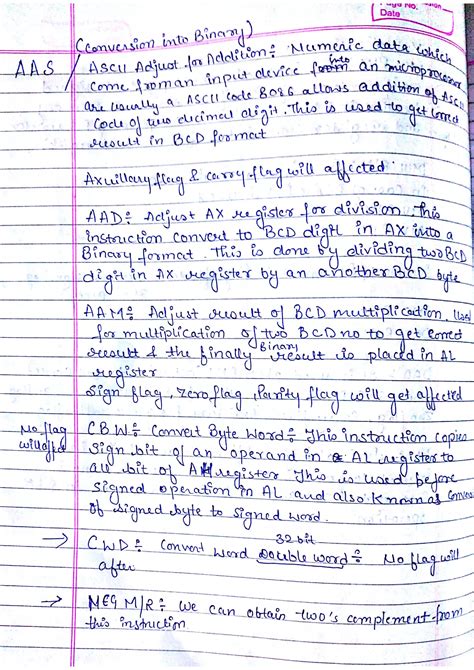 Page No.
Date
(Conversion into Binary)
AAS / ASCII Adjust for Addition: Numeric data which
come from an input device into an microprocessor
are usually a ASCII code 8086 allows addition of ASCII
Code of two decimal digit. This is used to get correct
result in BCD format
Auxillary flag & carry flag will affected.
AAD: Adjust AX register for division. This
instruction convert to BCD digit in AX into a
Binary format. This is done by dividing two BCD
digit in AX register by an another BCD byte
AAM: Adjust result of BCD multiplication, Used
for multiplication of two BCD no to get correct
result & the finally Binary result is placed in AL
register
Sign flag, zero flag, Parity flag will get affected
No flag
will affect
CBW: Convert Byte Word: This instruction copies
Sign bit of an operand in AL register to
all bit of AH register This is used before
signed operation in AL and also known as
of signed byte to signed word.
32 bit
→ CWD: Convert word Double word: No flag will
after
→ NEG M/R: we can obtain two's complement from
this instruction